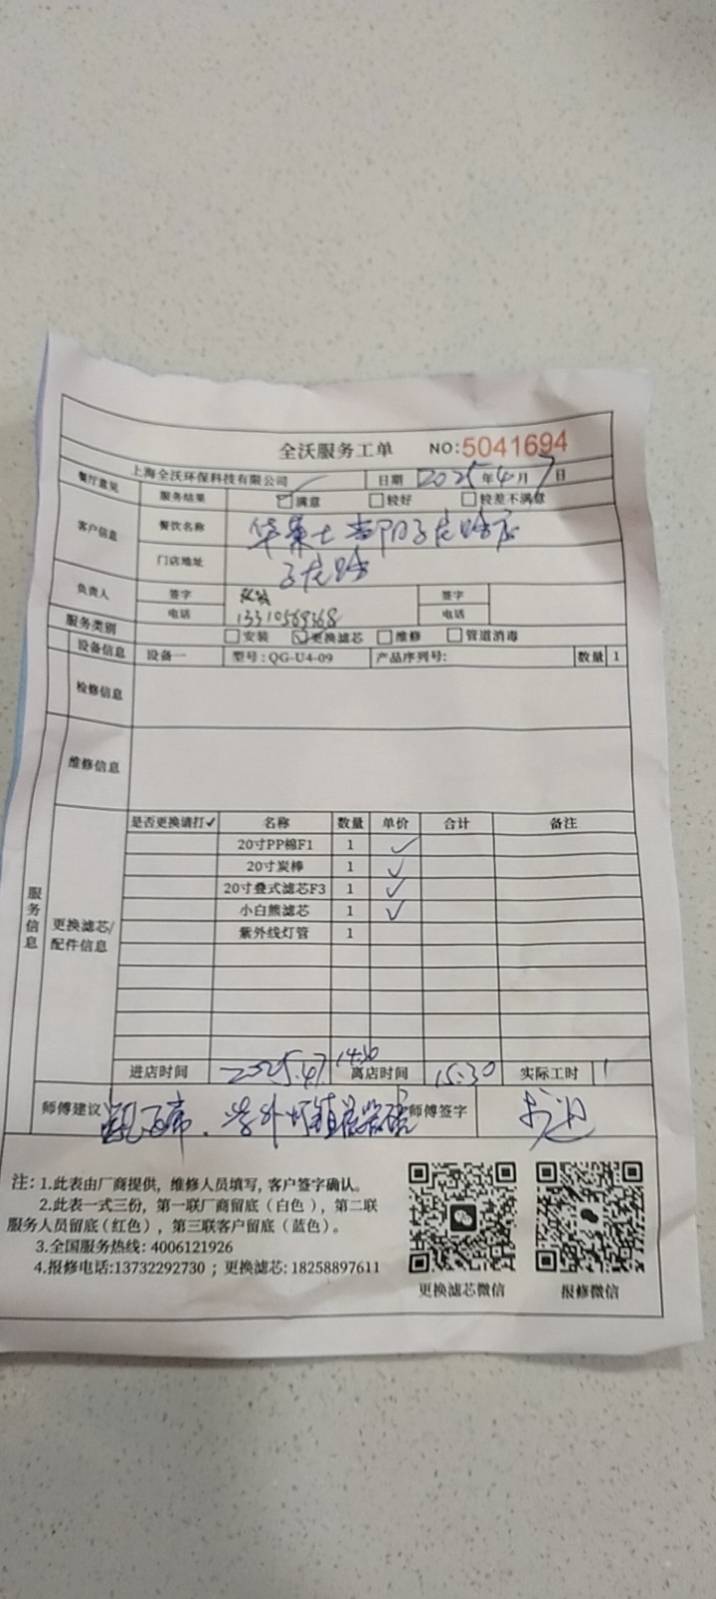 全沃服务工单 NO:5041694
上海全沃环保科技有限公司 日期 2025年4月7日
餐厅意见 服务结果 满意 较好 较差不满意
客户信息 餐饮名称 华莱士 子龙路店
门店地址 子龙路
负责人 签字 签字
电话 13310569368 电话
服务类别 安装 更换滤芯 维修 管道消毒
设备信息 设备一 型号:QG-U4-09 产品序列号: 数量 1
检修信息
维修信息
服务信息
更换滤芯/配件信息
是否更换请打✓ 名称 数量 单价 合计 备注
20寸PP棉F1 1 ✓
20寸炭棒 1 ✓
20寸叠式滤芯F3 1 ✓
小白熊滤芯 1 ✓
紫外线灯管 1
进店时间 2025.4.7 14:30 离店时间 15:30 实际工时 1
师傅建议 紫外灯镇流器 师傅签字
注:1.此表由厂商提供,维修人员填写,客户签字确认。
2.此表一式三份,第一联厂商留底(白色),第二联
服务人员留底(红色),第三联客户留底(蓝色)。
3.全国服务热线:4006121926
4.报修电话:13732292730;更换滤芯:18258897611
更换滤芯微信 报修微信